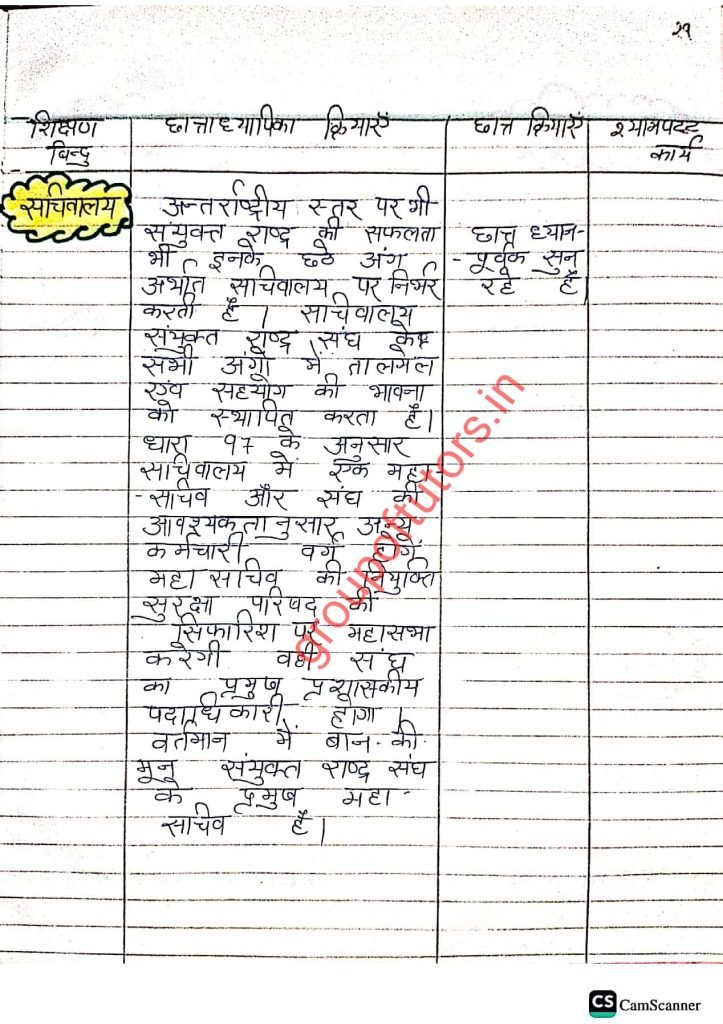 २१
शिक्षण बिन्दु
छात्राध्यापिका क्रियाएँ
छात्र क्रियाएँ
श्यामपट्ट कार्य
सचिवालय
अन्तर्राष्ट्रीय स्तर पर भी
संयुक्त राष्ट्र की सफलता
भी इनके छठे अंग
अर्थात सचिवालय पर निर्भर
करती है । सचिवालय
संयुक्त राष्ट्र संघ के
सभी अंगो में तालमेल
एंव सहयोग की भावना
को स्थापित करता है।
धारा 97 के अनुसार
सचिवालय में एक महा-
-सचिव और संघ की
आवश्यकतानुसार अन्य
कर्मचारी वर्ग होगें
महासचिव की नियुक्ति
सुरक्षा परिषद की
सिफारिश पर महासभा
करेगी वही संघ
का प्रमुख प्रशासकीय
पदाधिकारी होगा ।
वर्तमान में बान. की.
मून संयुक्त राष्ट्र संघ
के प्रमुख महा-
सचिव है।
छात्र ध्यान-
-पूर्वक सुन
रहे है।
groupoftutors.in
CS CamScanner